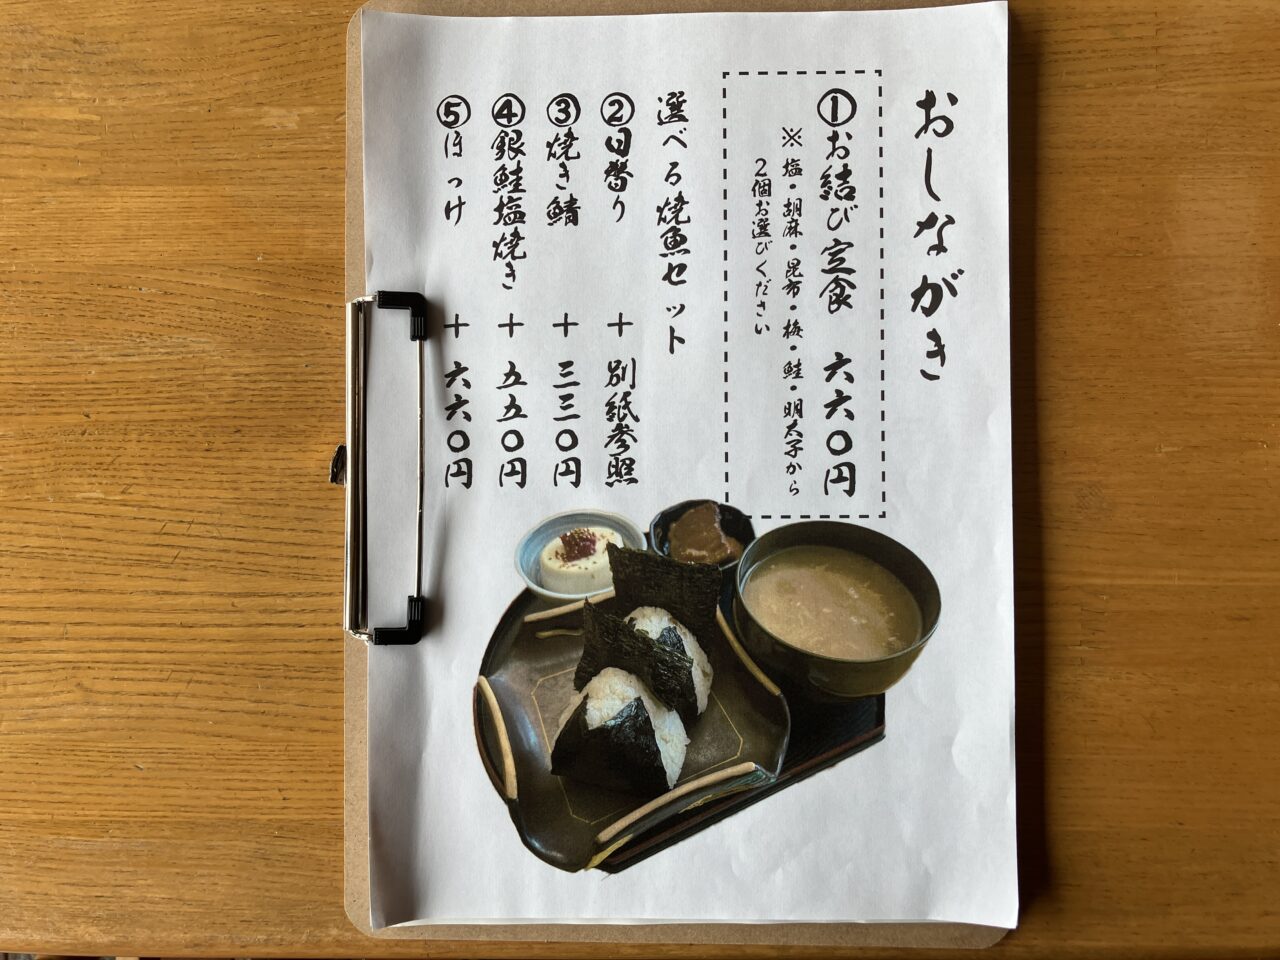 おしながき
①お結び定食 六六〇円
※塩・胡麻・昆布・梅・鮭・明太子から
2個お選びください
選べる焼魚セット
②日替り ＋ 別紙参照
③焼き鯖 ＋ 三三〇円
④銀鮭塩焼き ＋ 五五〇円
⑤ほっけ ＋ 六六〇円